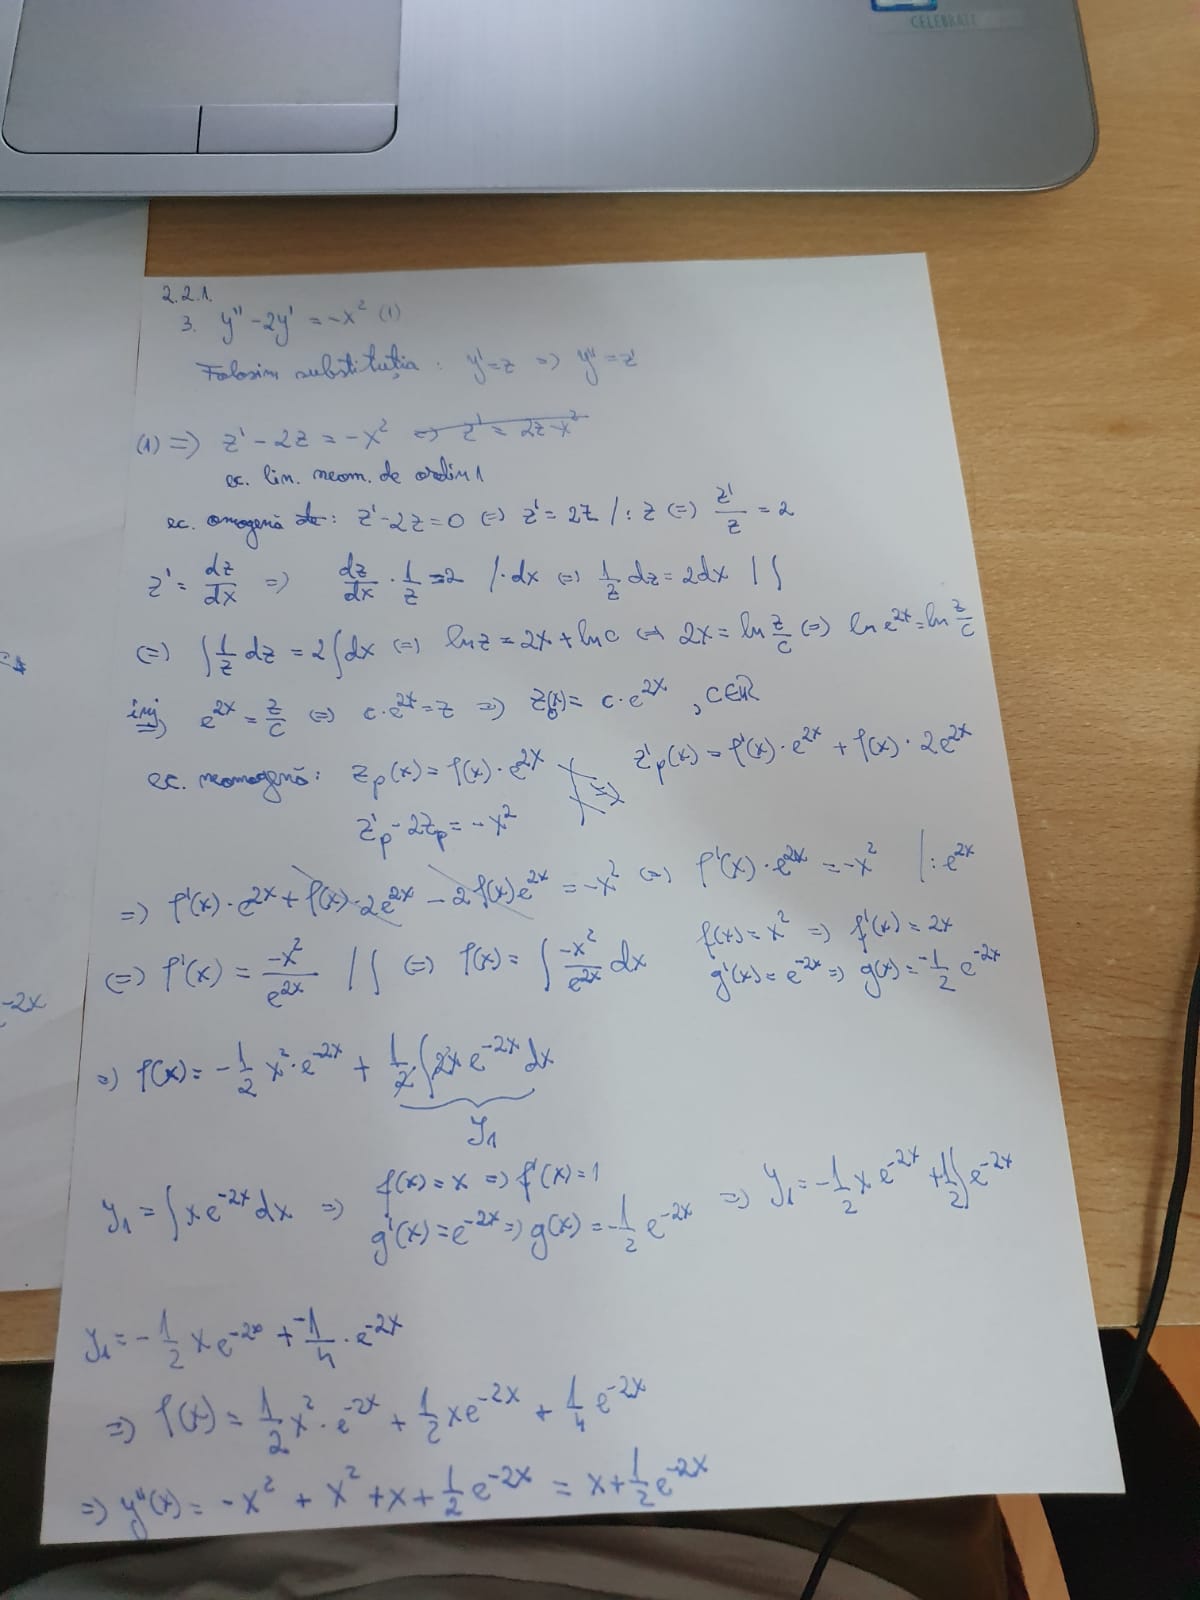 CELEBRATE
2.2.1.
3. y'' - 2y' = -x² (1)
Folosim substituția : y' = z => y'' = z'
(1) => z' - 2z = -x² <=> z' = 2z - x²
ec. lin. neom. de ordin 1
ec. omogenă de: z' - 2z = 0 (=) z' = 2z /: z (=) z'/z = 2
z' = dz/dx => dz/dx · 1/z = 2 /· dx (=) 1/z dz = 2dx | ∫
(=) ∫ 1/z dz = 2∫dx (=) ln z = 2x + ln c (=) 2x = ln z/c (=) ln e^2x = ln z/c
inj => e^2x = z/c (=) c · e^2x = z => z₀(x) = c · e^2x , c∈ℝ
ec. neomogenă: z_p(x) = f(x) · e^2x => z'_p(x) = f'(x) · e^2x + f(x) · 2e^2x
z'_p - 2z_p = -x²
=> f'(x) · e^2x + f(x) · 2e^2x - 2f(x)e^2x = -x² (=) f'(x) · e^2x = -x² | : e^2x
(=) f'(x) = -x²/e^2x | ∫ (=) f(x) = ∫ -x²/e^2x dx f(x) = x² => f'(x) = 2x
g'(x) = e^-2x => g(x) = -1/2 e^-2x
=> f(x) = -1/2 x² · e^-2x + 1/2 ∫ 2x e^-2x dx
y₁
y₁ = ∫ x e^-2x dx => f(x) = x => f'(x) = 1
g'(x) = e^-2x => g(x) = -1/2 e^-2x => y₁ = -1/2 x e^-2x + 1/2 ∫ e^-2x
y₁ = -1/2 x e^-2x + -1/4 · e^-2x
=> f(x) = 1/2 x² · e^-2x + 1/2 x e^-2x + 1/4 e^-2x
=> y''(x) = -x² + x² + x + 1/2 e^-2x = x + 1/2 e^-2x
-2x